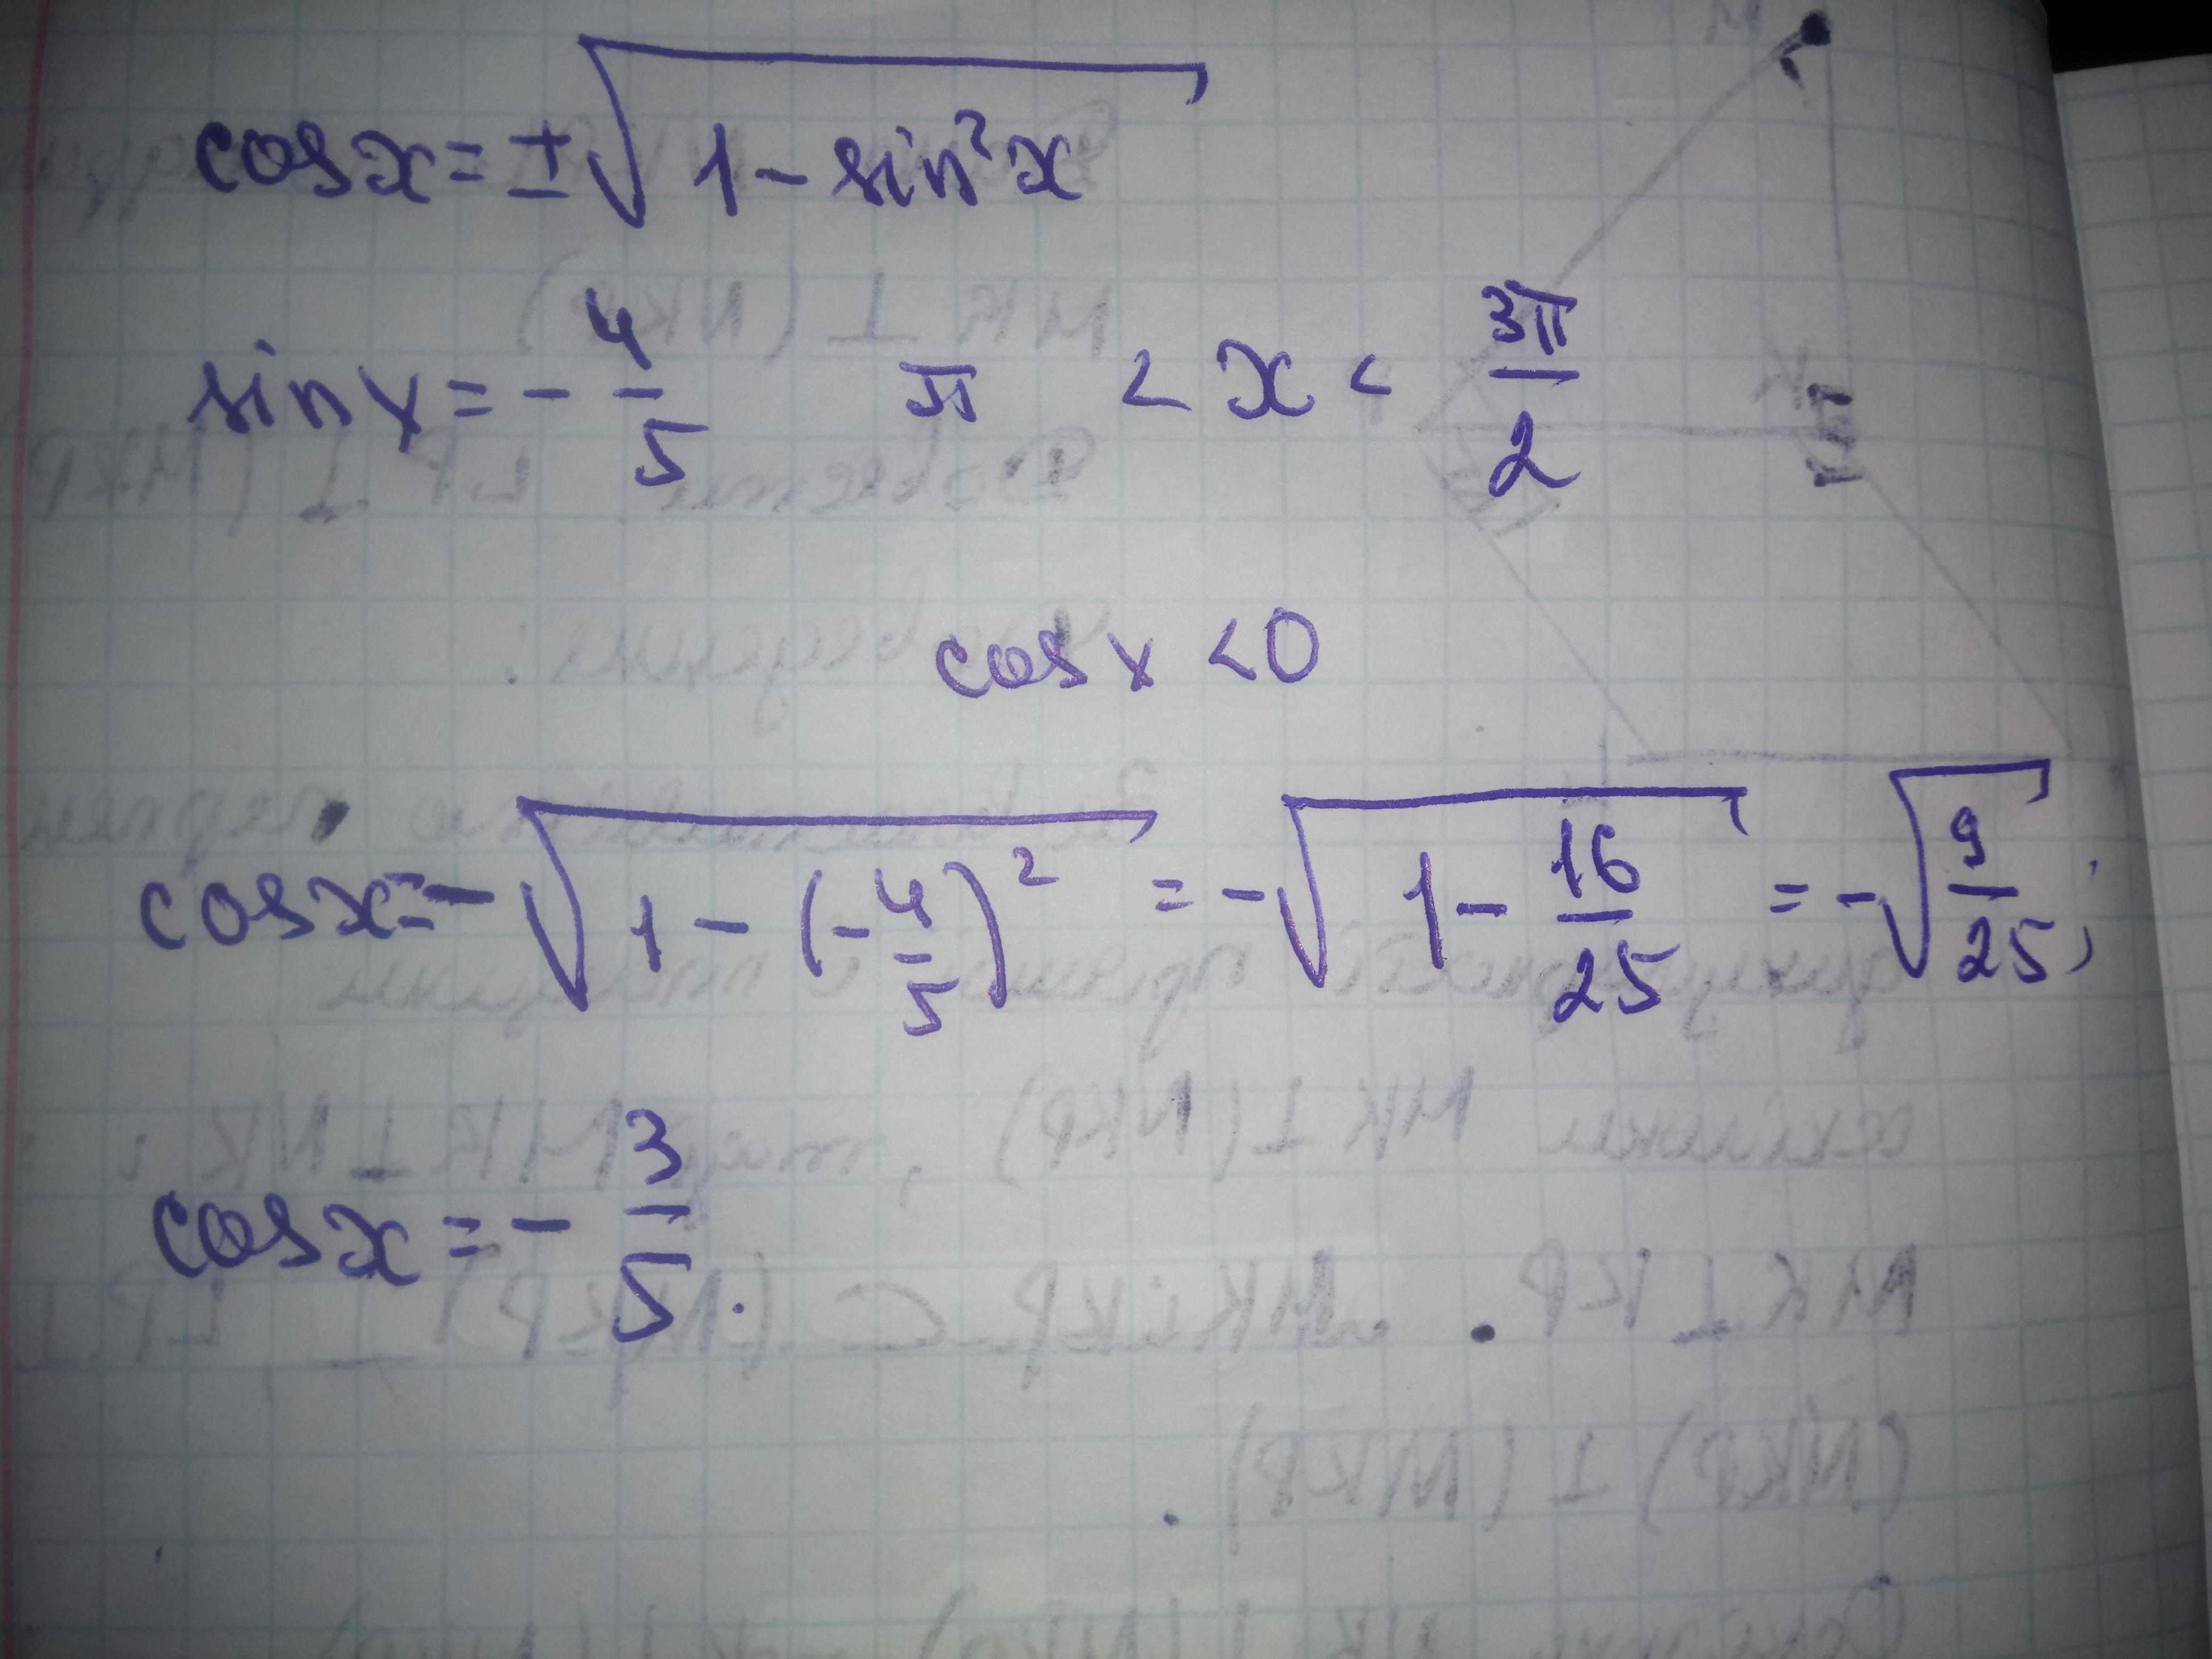 cos x = ± √(1 - sin² x)
sin x = - 4/5 π < x < 3π/2
cos x < 0
cos x = - √(1 - (-4/5)²) = - √(1 - 16/25) = - √(9/25);
cos x = - 3/5.